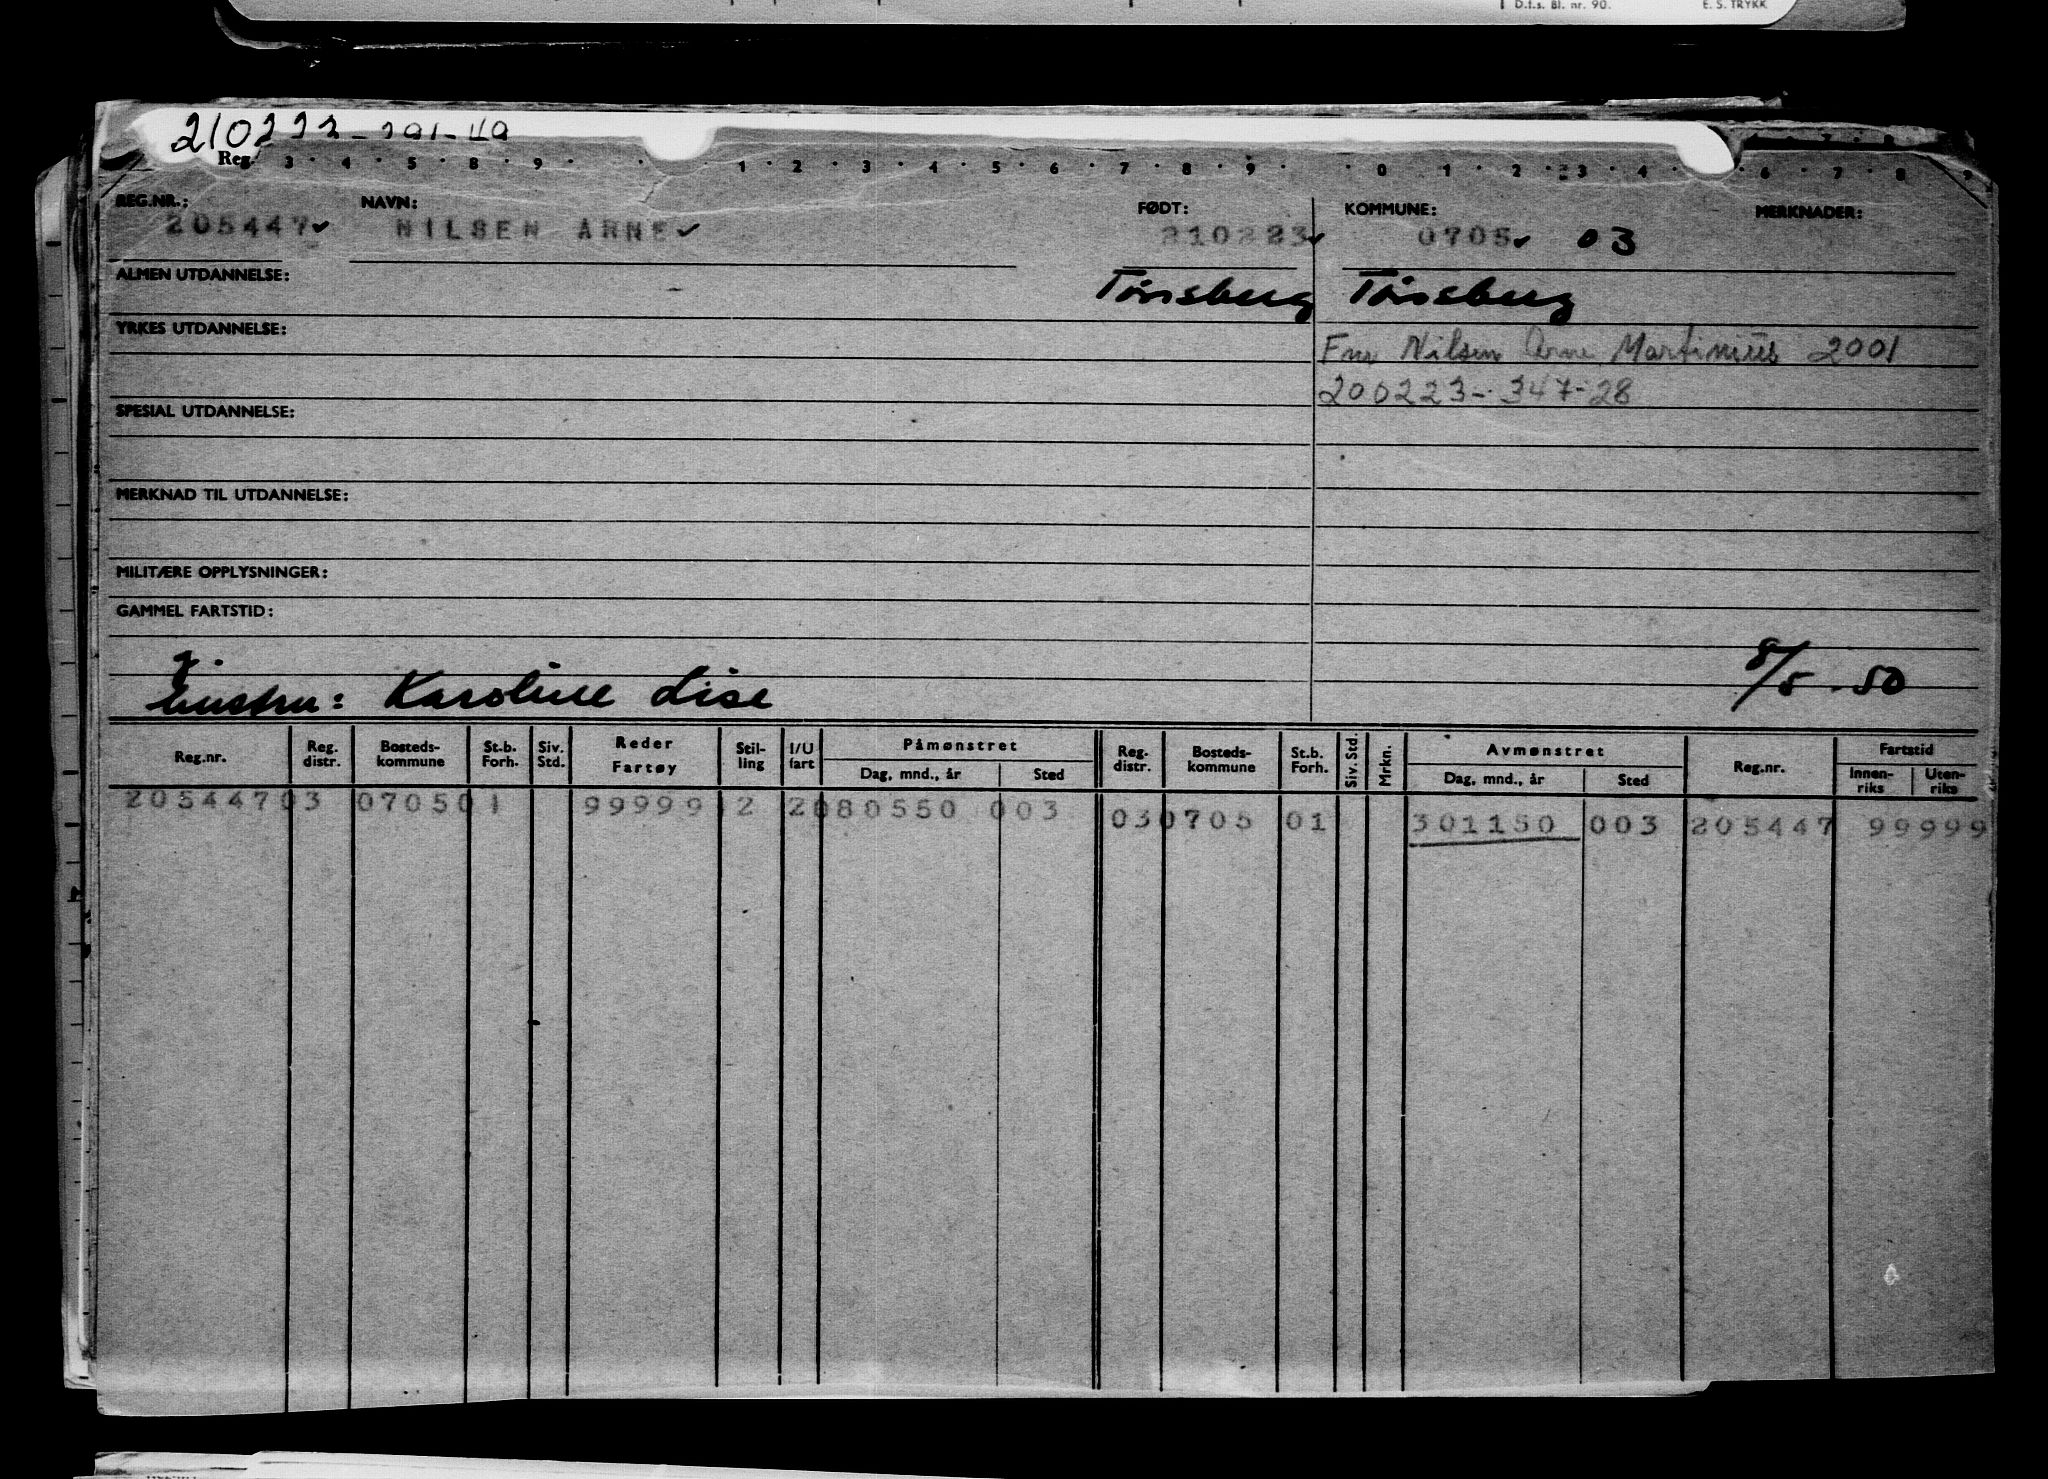 D.f.s. Bl. nr. 90. E. S. TRYKK
Reg. 3 · 4 · 5 · 8 · 9 · 1 · 2 · 3 · 4 · 5 · 6 · 7 · 8 · 9 · 0 · 1 · 2 · 3 · 4 · 6 · 7 · 8 · 9
REG.NR.: NAVN: FØDT: KOMMUNE: MERKNADER:
205447 NILSEN ARNE 210223 0705 03
ALMEN UTDANNELSE: Tønsberg Tønsberg
YRKES UTDANNELSE: Nilsen Arne Martinius 2001
200223-347-28
SPESIAL UTDANNELSE:
MERKNAD TIL UTDANNELSE:
MILITÆRE OPPLYSNINGER:
GAMMEL FARTSTID:
g. hustru: Karoline Lise 8/5-50
Reg.nr. Reg. distr. Bosteds-kommune St.b. Forh. Siv. Std. Reder Fartøy Stil-ling I/U fart Påmønstret Dag, mnd., år Sted Reg. distr. Bosteds-kommune St.b. Forh. Siv. Std. Mrkn. Avmønstret Dag, mnd., år Sted Reg.nr. Fartstid Innen-riks Uten-riks
205447 03 0705 01 99999 2 2 080550 003 03 0705 01 301150 003 205447 99999